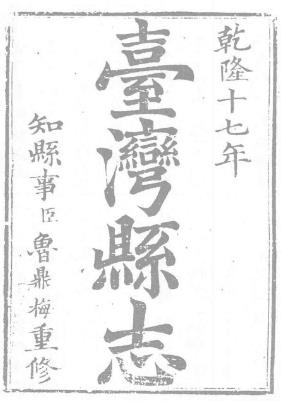 乾隆十七年
臺灣縣志
知縣事臣魯鼎梅重修